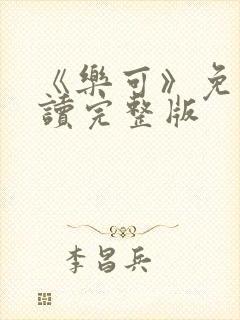 《樂可》免
讀完整版
李昌兵